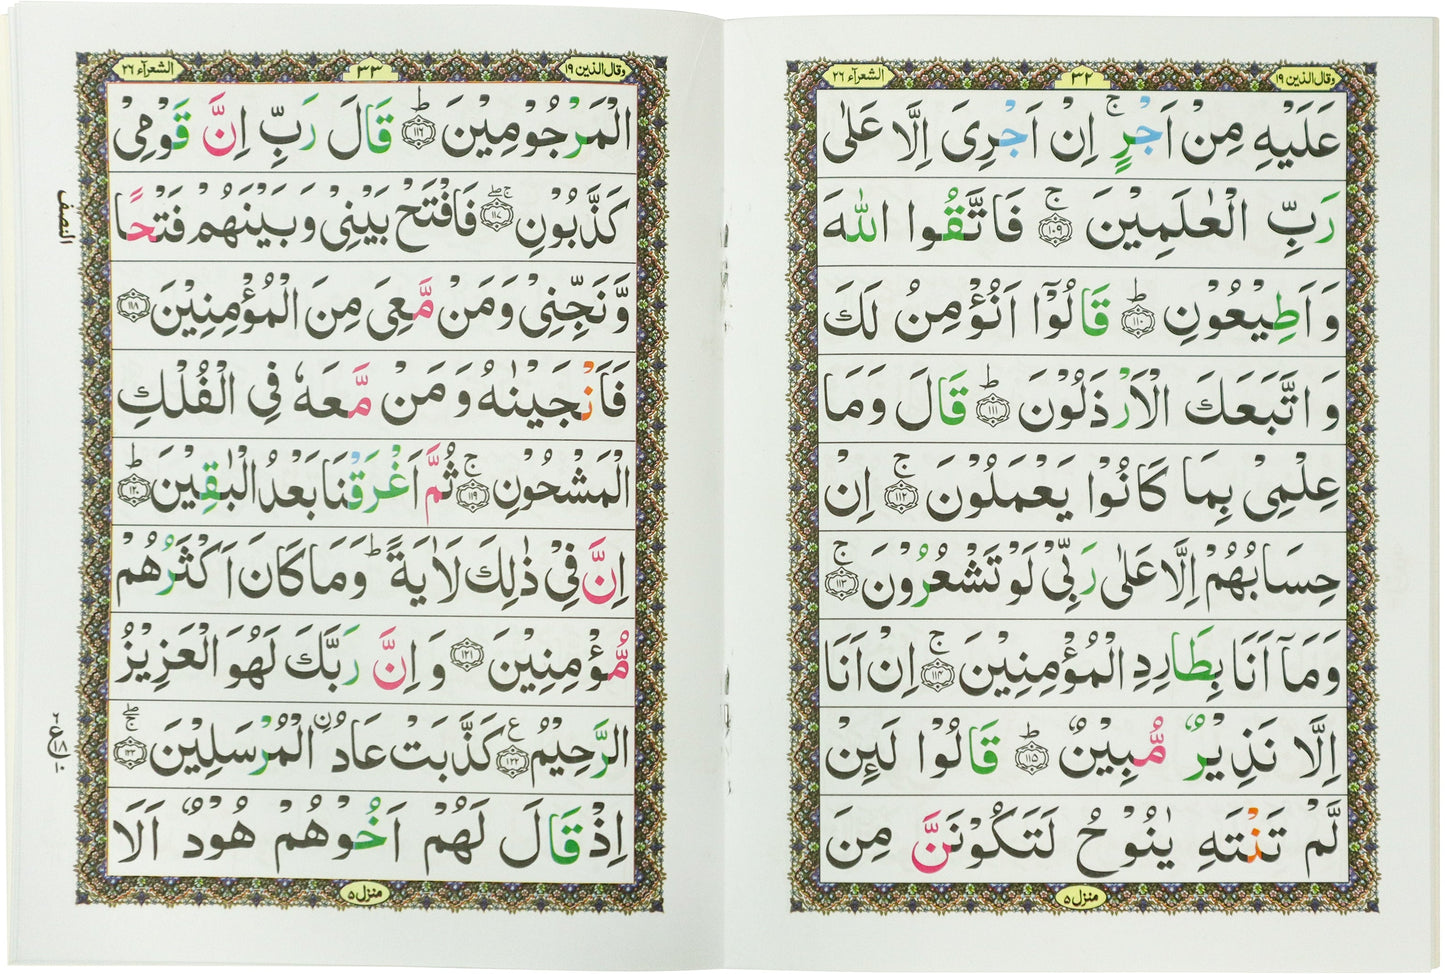 وقال الذين ١٩
٣٢
الشعرآء ٢٦
عَلَيْهِ مِنْ اَجْرٍ ۚ اِنْ اَجْرِىَ اِلَّا عَلٰى
رَبِّ الْعٰلَمِيْنَ ۚ ﴿١٠٩﴾ فَاتَّقُوا اللّٰهَ
وَ اَطِيْعُوْنِ ؕ ﴿١١٠﴾ قَالُوْۤا اَنُؤْمِنُ لَكَ
وَ اتَّبَعَكَ الْاَرْذَلُوْنَ ؕ ﴿١١١﴾ قَالَ وَمَا
عِلْمِىْ بِمَا كَانُوْا يَعْمَلُوْنَ ۚ ﴿١١٢﴾ اِنْ
حِسَابُهُمْ اِلَّا عَلٰى رَبِّىْ لَوْ تَشْعُرُوْنَ ۚ ﴿١١٣﴾
وَمَاۤ اَنَا بِطَارِدِ الْمُؤْمِنِيْنَ ۚ ﴿١١٤﴾ اِنْ اَنَا
اِلَّا نَذِيْرٌ مُّبِيْنٌ ؕ ﴿١١٥﴾ قَالُوْا لَئِنْ
لَّمْ تَنْتَهِ يٰنُوْحُ لَتَكُوْنَنَّ مِنَ
منزل ٥
وقال الذين ١٩
٣٣
الشعرآء ٢٦
الْمَرْجُوْمِيْنَ ؕ ﴿١١٦﴾ قَالَ رَبِّ اِنَّ قَوْمِىْ
كَذَّبُوْنِ ۚۖ ﴿١١٧﴾ فَافْتَحْ بَيْنِىْ وَ بَيْنَهُمْ فَتْحًا
وَّ نَجِّنِىْ وَ مَنْ مَّعِىَ مِنَ الْمُؤْمِنِيْنَ ﴿١١٨﴾
فَاَنْجَيْنٰهُ وَ مَنْ مَّعَهٗ فِى الْفُلْكِ
الْمَشْحُوْنِ ۚ ﴿١١٩﴾ ثُمَّ اَغْرَقْنَا بَعْدُ الْبٰقِيْنَ ؕ ﴿١٢٠﴾
اِنَّ فِىْ ذٰلِكَ لَاٰيَةً ؕ وَ مَا كَانَ اَكْثَرُهُمْ
مُّؤْمِنِيْنَ ﴿١٢١﴾ وَ اِنَّ رَبَّكَ لَهُوَ الْعَزِيْزُ
الرَّحِيْمُ ﴿١٢٢﴾ ع كَذَّبَتْ عَادُ ۨالْمُرْسَلِيْنَ ۚۖ ﴿١٢٣﴾
اِذْ قَالَ لَهُمْ اَخُوْهُمْ هُوْدٌ اَلَا
منزل ٥
النصف
ع ١٨ ١٠